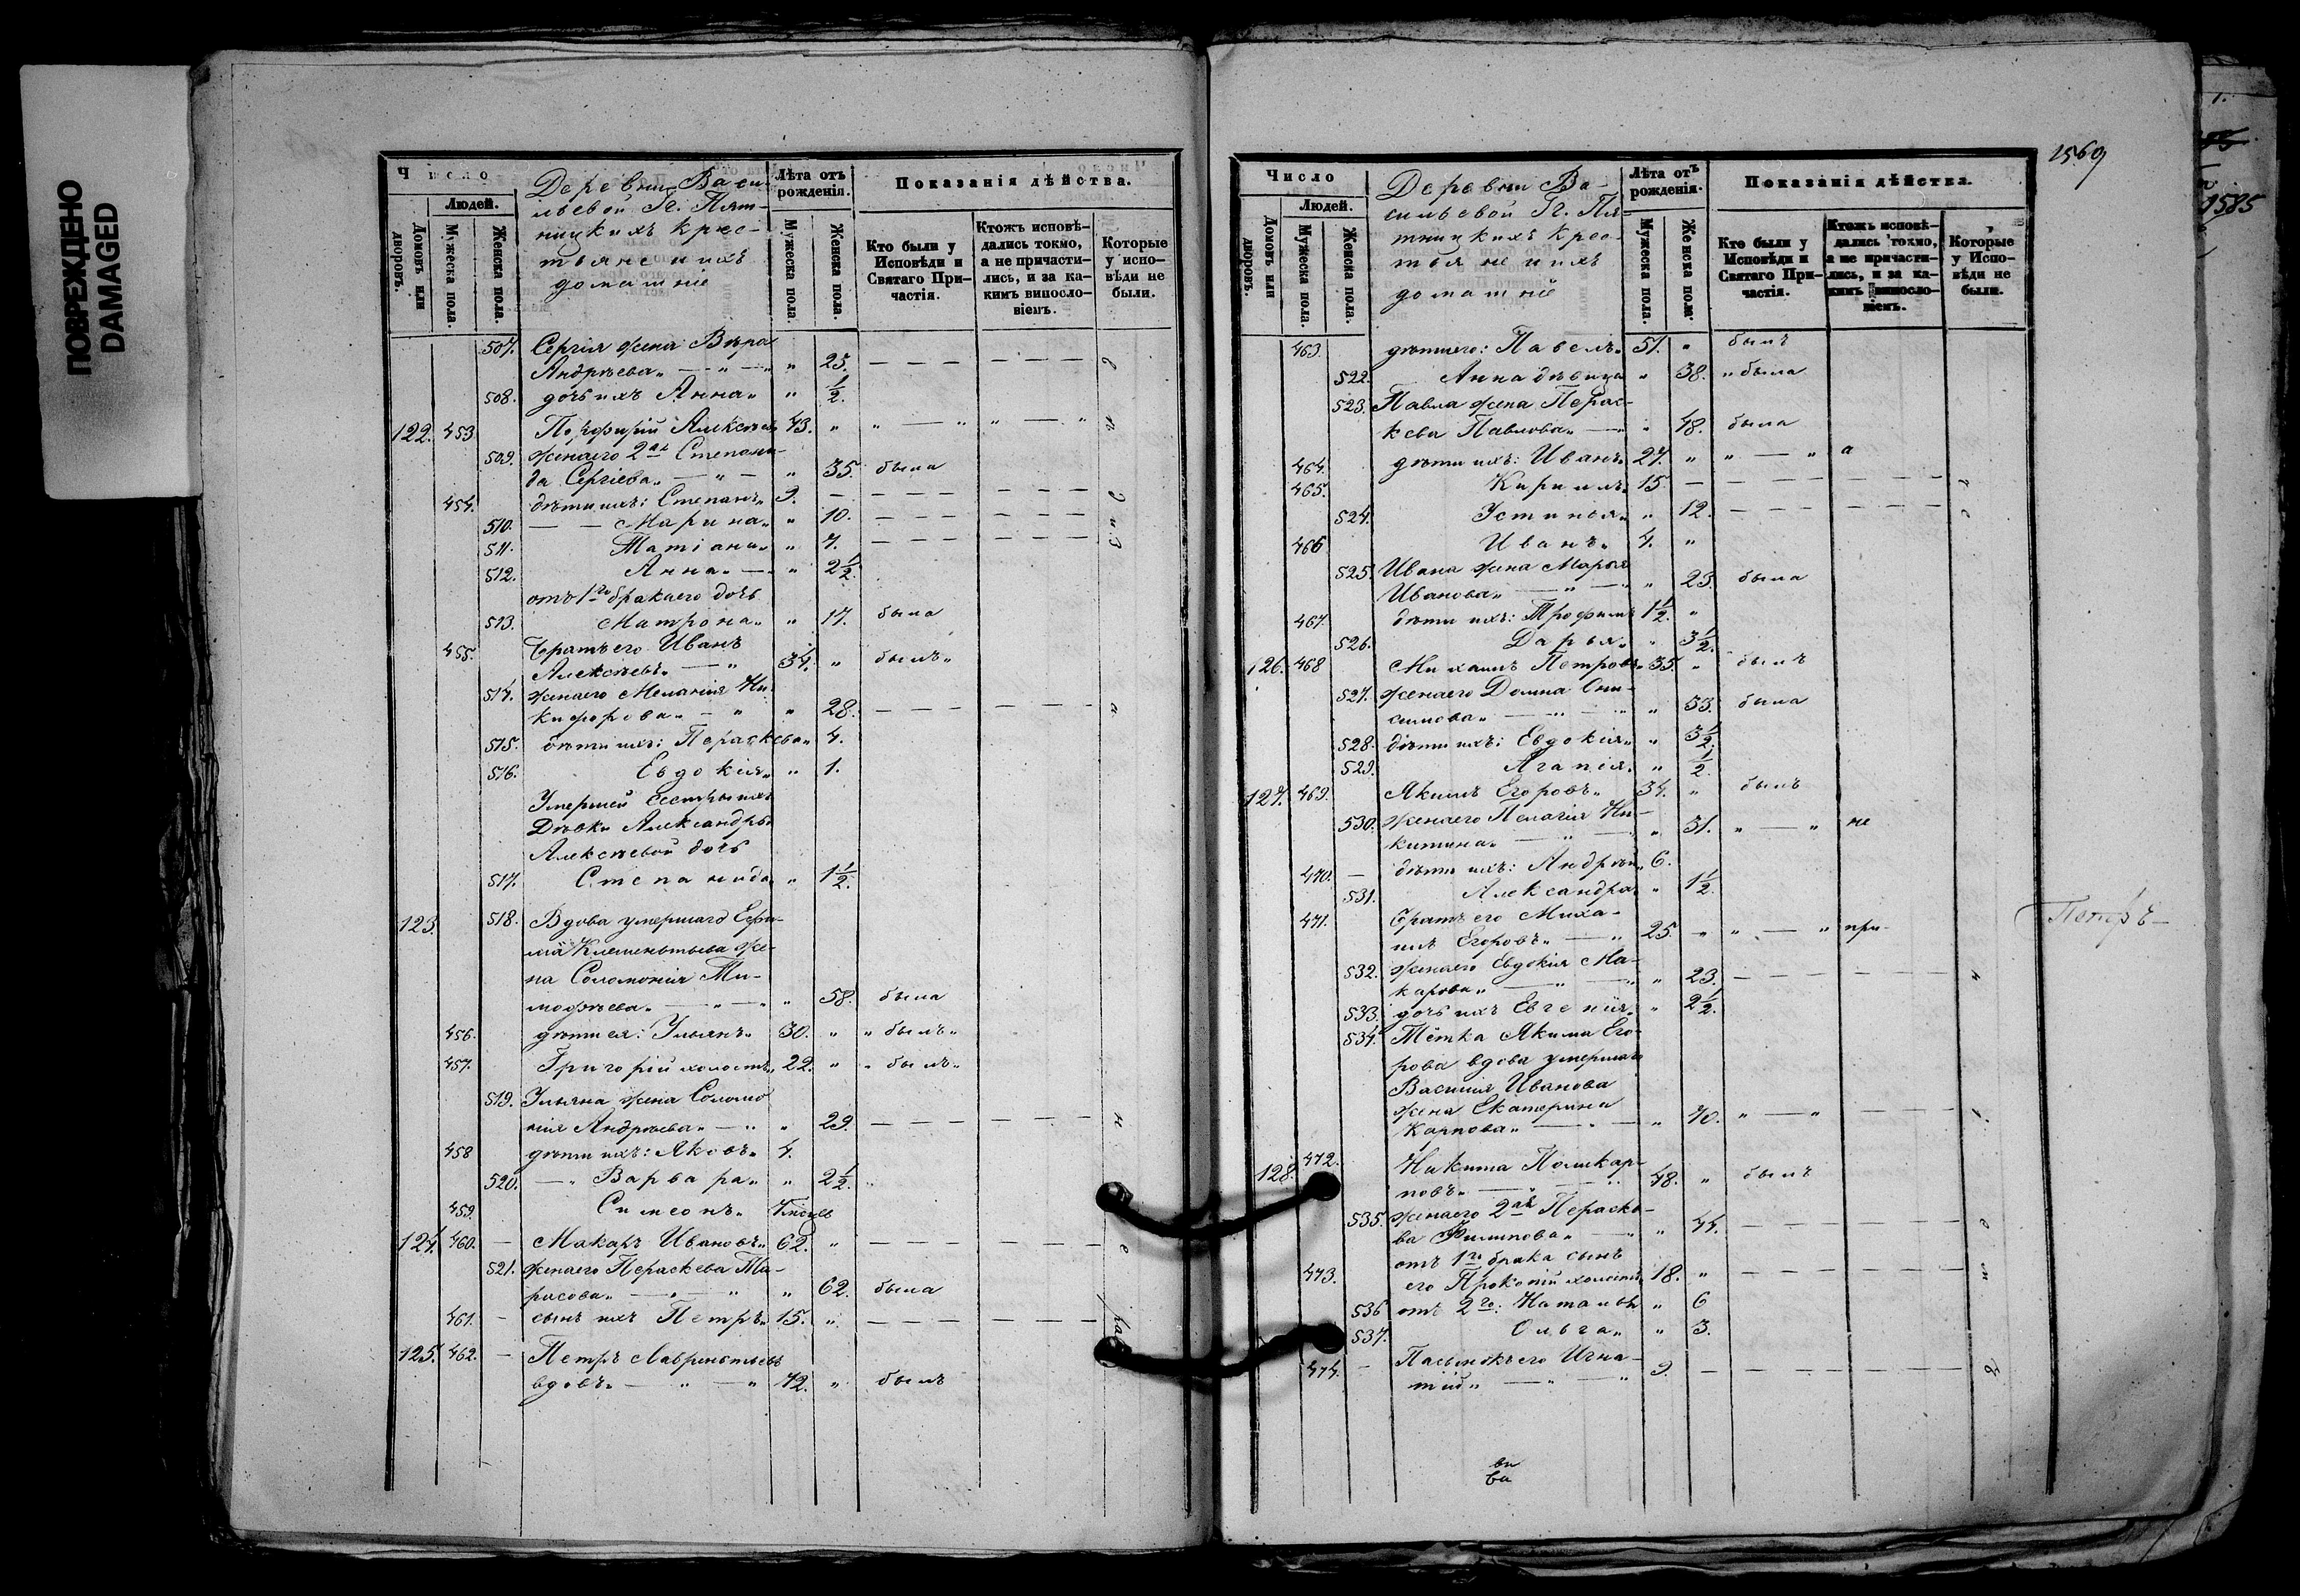 ПОВРЕЖДЕНО
DAMAGED
Число
Людей.
Домовъ или дворовъ.
Мужеска пола.
Женска пола.
Деревни Васи-
льевой Гг. Пят-
ницкихъ крес-
тьяне и ихъ
домашніе
Лѣта отъ рожденія.
Мужеска пола.
Женска пола.
Показанія дѣйства.
Кто были у Исповѣди и Святаго При-частія.
Ктожъ исповѣ-дались токмо, а не причасти-лись, и за ка-кимъ винословіемъ.
Которые у испо-вѣди не были.
507. Сергія жена Вѣра
Андрѣева „ 25.
508. дочь ихъ Анна „ ½.
122. 453. Порфирій Алексѣевъ 43. „
509. жена его 2ая Степани-
да Сергіева „ 35. была
454. дѣти ихъ: Степанъ 9.
510. Марина „ 10.
511. Татіана „ 7.
512. Анна „ 2½.
отъ 1го брака его дочь
513. Матрона „ 17. была
455. братъ его Иванъ
Алексѣевъ 34. „ былъ
514. жена его Меланія Ни-
кифорова „ 28.
515. дѣти ихъ: Параскева „ 4.
516. Евдокія „ 1.
Умершей сестры ихъ
Дѣвки Александры
Алексѣевой дочь
517. Степанида „ 1½.
123. 518. Вдова умершаго Ефи-
ма Клементьева же-
на Соломонія Ти-
мофѣева „ 58. была
456. дѣти ея: Ульянъ 30. „ былъ
457. Григорій холостъ 22. „ былъ
519. Ульяна жена Соломо
нія Андрѣева „ 29.
458 дѣти ихъ: Яковъ 4.
520. Варвара „ 2½.
459. Симеонъ
124. 460. Макаръ Ивановъ 62. „
521. жена его Параскева Та-
расова „ 62. была
461. сынъ ихъ Петръ 15. „
125. 462. Петръ Лаврентьевъ
вдовъ 72. „ былъ
1569
1585
Число
Людей.
Домовъ или дворовъ.
Мужеска пола.
Женска пола.
Деревни Ва-
сильевой Гг. Пя-
тницкихъ крес-
тьяне и ихъ
домашніе
Лѣта отъ рожденія.
Мужеска пола.
Женска пола.
Показанія дѣйства.
Кто были у Исповѣди и Святаго При-частія.
Ктожъ исповѣ-дались токмо, а не причасти-лись, и за ка-кимъ винословіемъ.
Которые у Испо-вѣди не были.
463. дѣти его: Павелъ 51. „ былъ
522. Анна дѣвица „ 38. была
523. Павла жена Парас-
кева Павлова „ 48. была
464. дѣти ихъ: Иванъ 27. „
465. Кирилъ 15.
524. Устинья „ 12.
466 Иванъ 4. „
525. Ивана жена Марья
Иванова „ 23. была
467. дѣти ихъ: Трофимъ 1½. „
526. Дарья „ 3½.
126. 468 Михаилъ Петровъ 35. „ былъ
527. жена его Домна Они-
симова „ 33. была
528. дѣти ихъ: Евдокія „ 3½.
529. Агапія „ ½.
127. 469. Якимъ Егоровъ 34. „ былъ
530. жена его Пелагія Ни-
китина „ 31. „ не
470. дѣти ихъ: Андрѣй 6.
531. Александра „ 1½.
471. братъ его Миха-
илъ Егоровъ 25. „ „ при-
532. жена его Евдокія Ма-
карова „ 23.
533. дочь ихъ Евгенія „ 2½.
534. Тётка Якима Его-
рова вдова умершаго
Василія Иванова
жена Екатерина
Карпова „ 70.
128. 472. Никита Поликар-
повъ 48. „ былъ
535. жена его 2ая Параске-
ва Филипова „ 44.
отъ 1го брака сынъ
473. его Прокопій холостъ 18. „
536 отъ 2го: Наталья „ 6
537. Ольга „ 3.
474. Пасынокъ его Игна-
тій 9.
Петръ